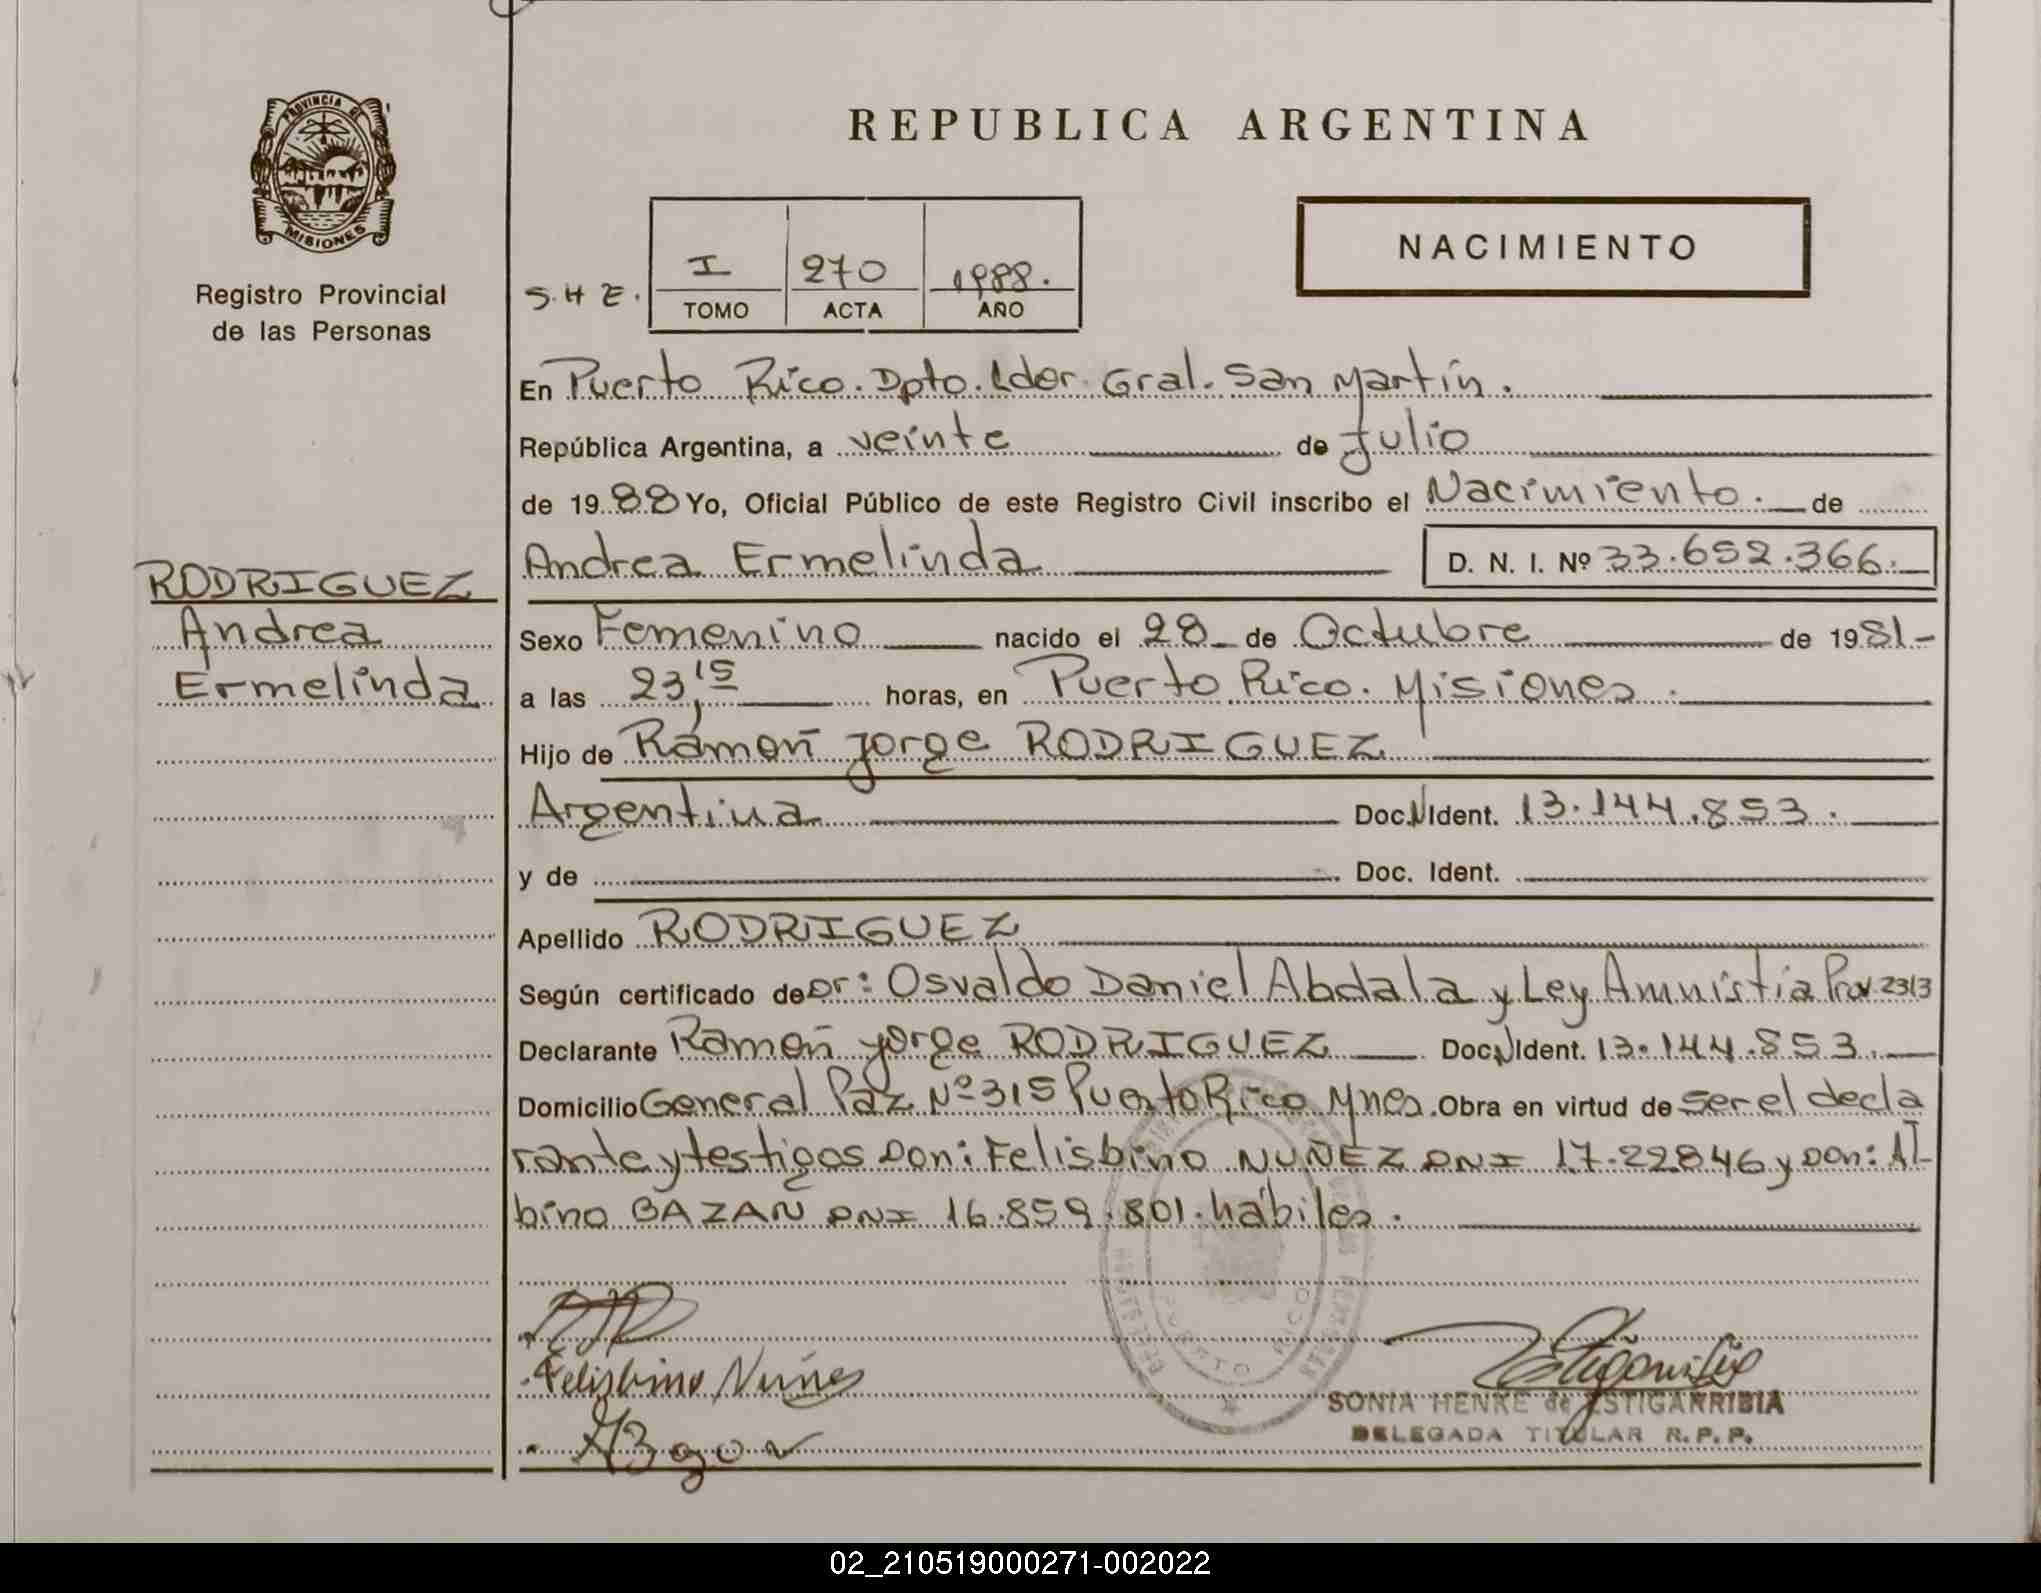 PROVINCIA DE
MISIONES
Registro Provincial
de las Personas
RODRIGUEZ
Andrea
Ermelinda
REPUBLICA ARGENTINA
NACIMIENTO
S.H E.
I 270 1988.
TOMO ACTA AÑO
En Puerto Rico. Dpto. Ldor. Gral. San Martín.
República Argentina, a veinte de Julio
de 1988 Yo, Oficial Público de este Registro Civil inscribo el Nacimiento. de
Andrea Ermelinda D. N. I. Nº 33.652.366.
Sexo Femenino nacido el 28 de Octubre de 1981-
a las 23,15 horas, en Puerto Rico. Misiones.
Hijo de Ramón Jorge RODRIGUEZ
Argentina Doc.N Ident. 13.144.853.
y de Doc. Ident.
Apellido RODRIGUEZ
Según certificado de Dr: Osvaldo Daniel Abdala y Ley Amnistía Prov 2313
Declarante Ramón Jorge RODRIGUEZ Doc.N Ident. 13.144.853.
Domicilio General Paz Nº 315 Puerto Rico Mnes. Obra en virtud de ser el decla
rante y testigos Don: Felisbino NUÑEZ DNI 17.22846 y Don: Al-
bino BAZAN DNI 16.859.801. hábiles.
PUERTO RICO
Felisbino Nuñes
SONIA HENKE de ESTIGARRIBIA
DELEGADA TITULAR R.P.P.
02_210519000271-002022